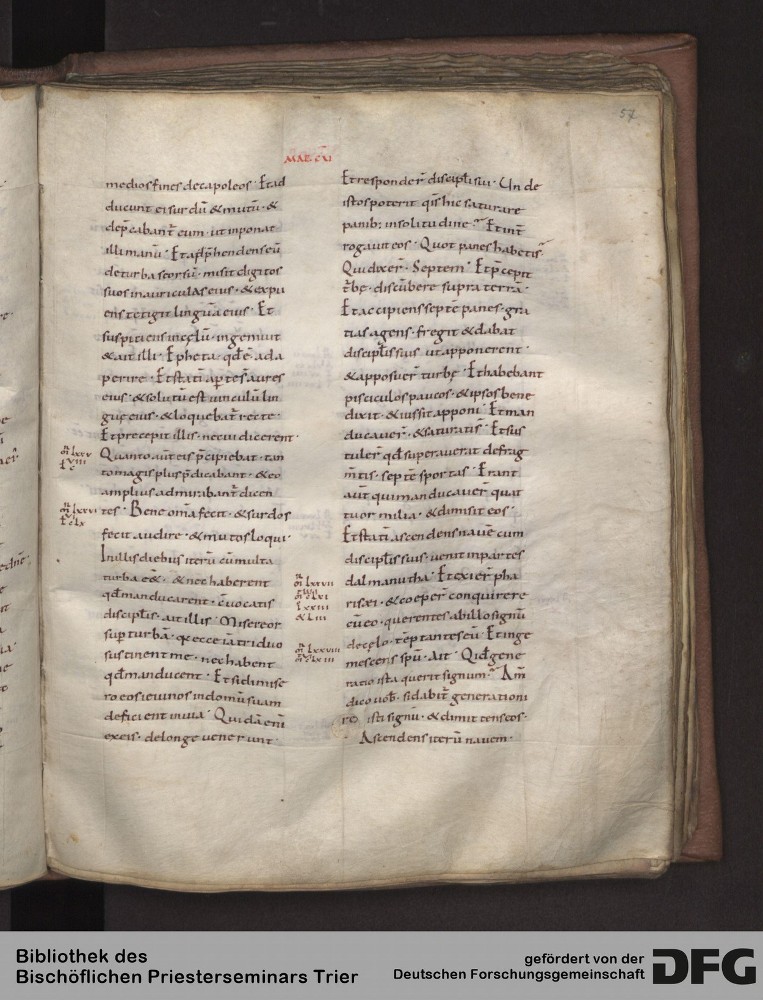 57
MAR. CXI
medios fines decapoleos · Et ad
ducunt ei surdū & mutū · &
dep̄cabant̄ eum · ut inponat
illi manū · Et app̄hendens eū
de turba seorsū · misit digitos
suos in auriculas eius · & expu
ens tetigit linguā eius · Et
suspitiens in cęlū · ingemuit
& ait illi · Epheta · qđ ē ada
perire · Et statī apertę s̄ aures
eius · & solutū est uinculū lin
guę eius · & loquebat̄ recte ·
Et precepit illis · ne cui dicerent ·
Quanto aūt eis p̄cipiebat · tan
to magis plus p̄dicabant · & eo
amplius admirabant̄ dicen
tes · Bene om̄a fecit · & surdos
fecit audire · & mutos loqui ·
In illis diebus iterū cū multa
turba ēē · & nec haberent
qđ manducarent · c̄uocatis
discipl̄is · ait illis · Misereor
sup̄ turbā · q̄ ecce iā triduo
sustinent me · nec habent
qđ manducent · Et si dimise
ro eos ieiunos in domū suam
deficient in uia · Quidā enī
ex eis · de longe uenerunt ·
Et responder̄ discipl̄i sui · Unde
istos poterit q̄s hic saturare
panib; in solitudine · Et int̄
rogauit eos · Quot panes habetis
Qui dixer̄ · Septem · Et p̄cepit
t̄bę · discūbere supra terrā ·
Et accipiens septē panes · gra
tias agens · fregit & dabat
discipl̄is suis · ut apponerent ·
& apposuer̄ turbę · Et habebant
pisciculos paucos · & ipsos bene
dixit · & iussit apponi · Et man
ducauer̄ · & saturati s̄ · Et sus
tuler̄ qđ superauerat de frag
m̄tis · septē sportas · Erant
aūt qui manducauer̄ quat
tuor milia · & dimisit eos ·
Et statī ascendens nauē cum
discipl̄is suis · uenit in partes
dalmanutha · Et exier̄ pha
risęi · & coeper̄ conquirere
cū eo · querentes ab illo signū
de cęlo · temptantes eū · Et inge
mescens sp̄u · Ait · Quid gene
ratio ista querit signum · Am̄
dico uob̄ · si dabit̄ generationi
isti signū · & dimittens eos ·
Ascendens iterū nauem ·
Bibliothek des
Bischöflichen Priesterseminars Trier
gefördert von der
Deutschen Forschungsgemeinschaft
DFG